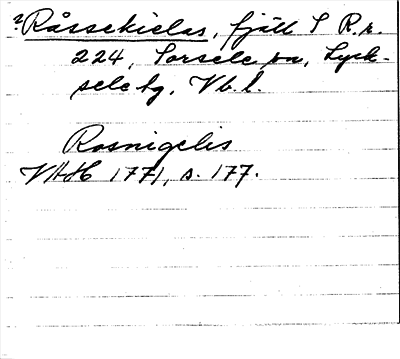 ?Råssekielas, fjäll S R.r.
224, Sorsele sn, Lyck-
sele lg, Vb. l.
Rosnigelis
VHAH 1771, s. 177.